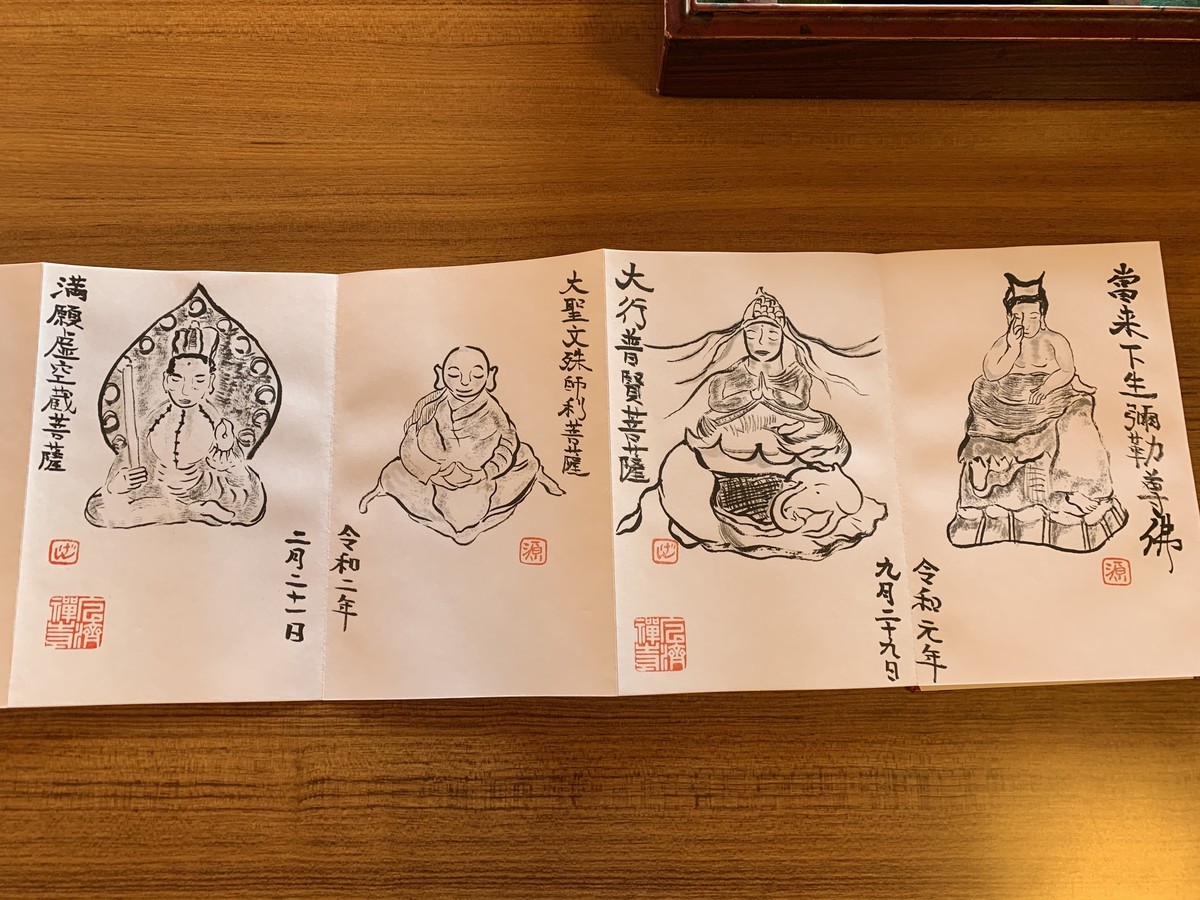 當来下生彌勒尊佛
令和元年
源
大行普賢菩薩
九月二十九日
大聖文殊師利菩薩
令和二年
源
満願虚空蔵菩薩
二月二十一日